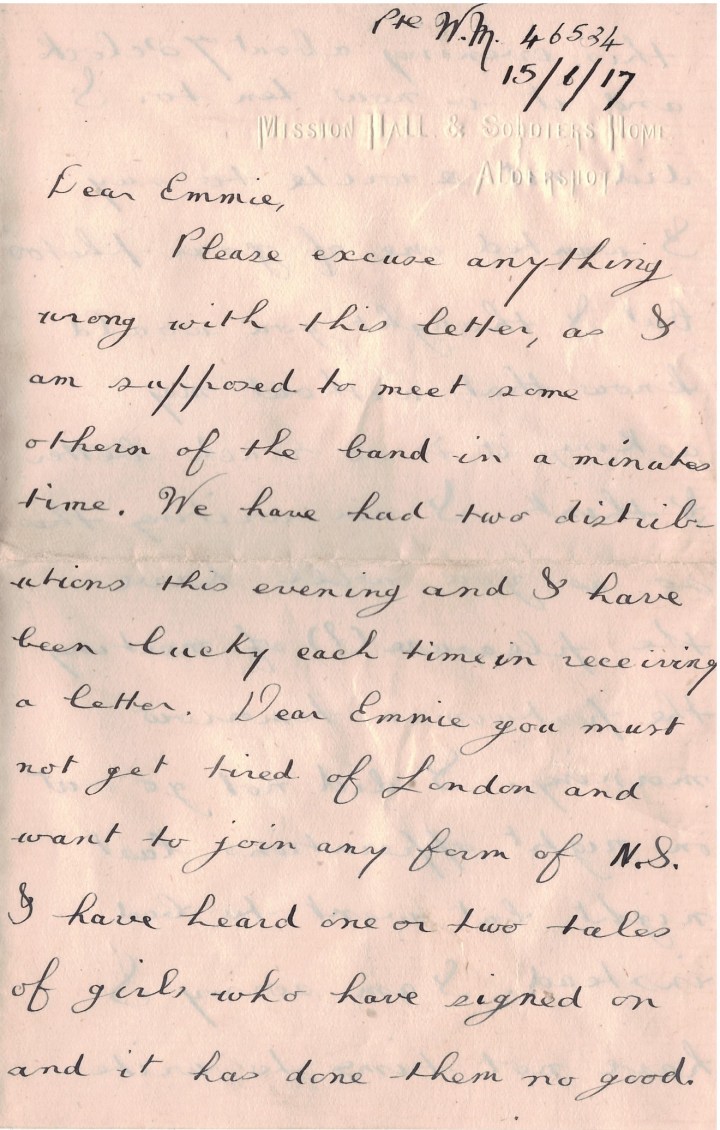 Pte W.M. 46534
15/1/17
MISSION HALL & SOLDIERS HOME
ALDERSHOT
Dear Emmie,
Please excuse anything
wrong with this letter, as I
am supposed to meet some
others of the band in a minutes
time. We have had two distrib-
utions this evening and I have
been lucky each time in receiving
a letter. Dear Emmie you must
not get tired of London and
want to join any form of N.S.
I have heard one or two tales
of girls who have signed on
and it has done them no good.